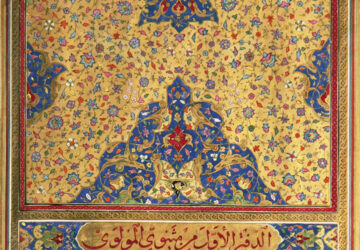 الدفتر الاول من مثنوی المولوی